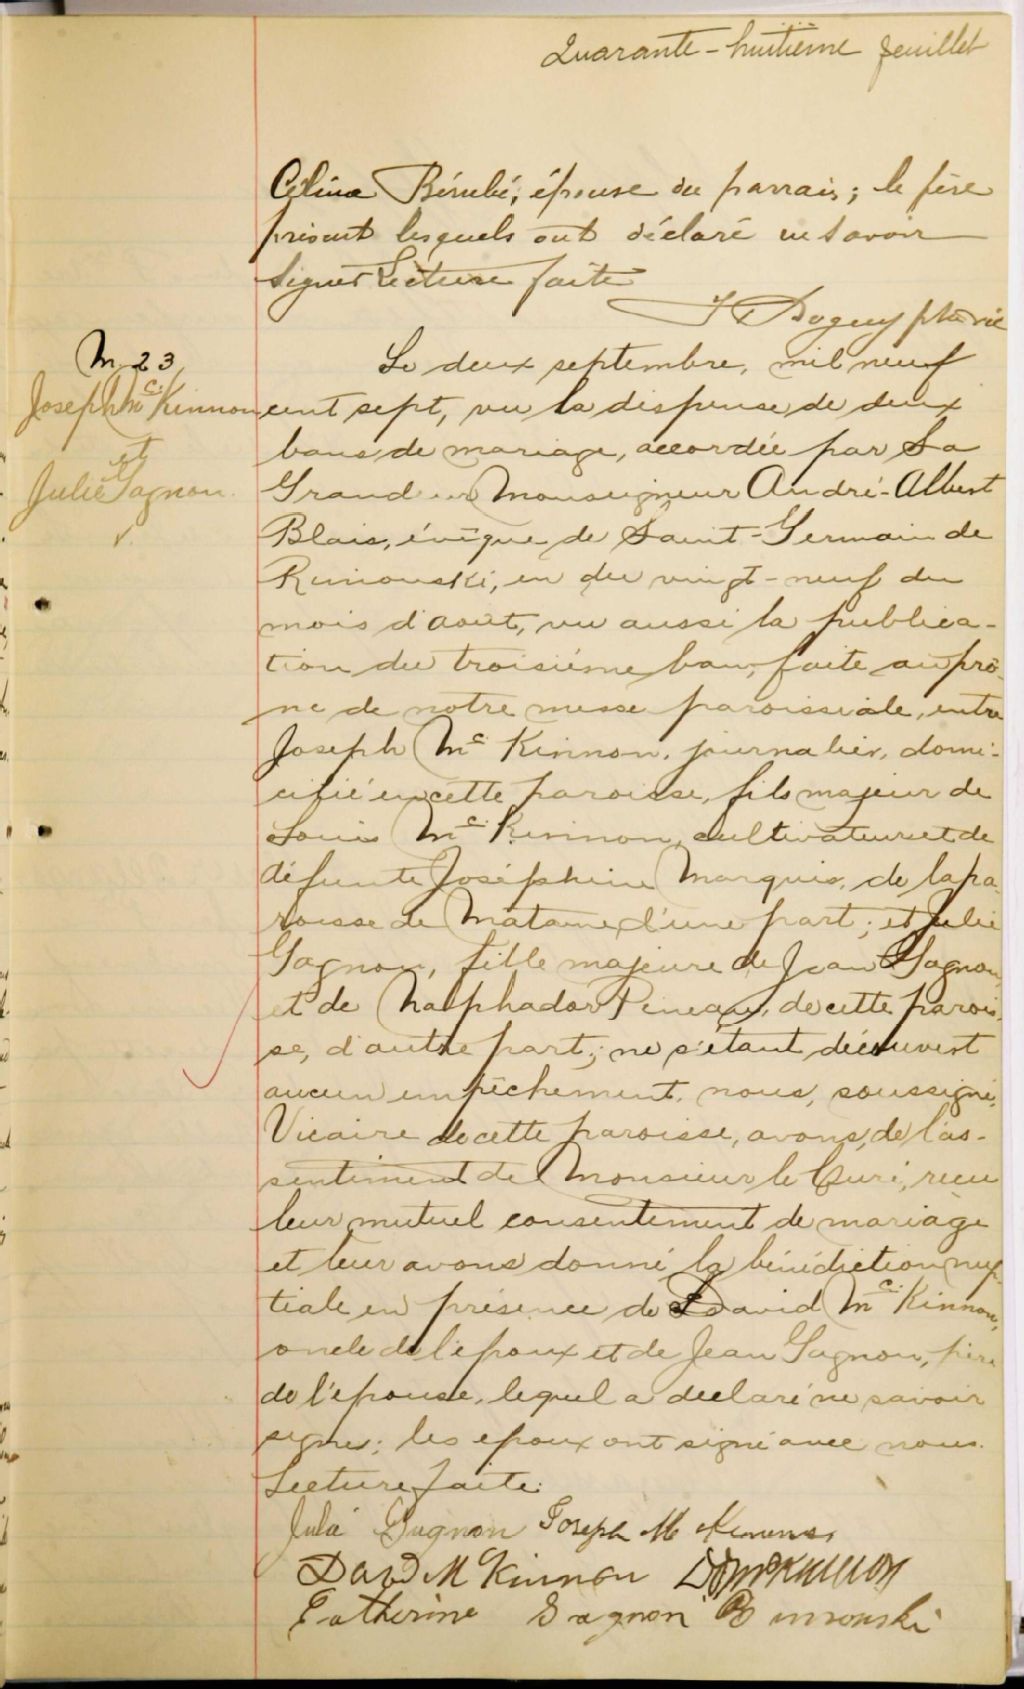 Quarante-huitième feuillet
Célina Bérubé, épouse du parrain; le père
présent lesquels ont déclaré ne savoir
signer Lecture faite
ptre vic
M 23
Joseph Mc Kinnon
et
Julie Gagnon.
Le deux septembre, mil neuf
cent sept, vu la dispense de deux
bans de mariage, accordée par Sa
Grandeur Monseigneur André-Albert
Blais, évêque de Saint-Germain de
Rimouski, en du vingt-neuf du
mois d'août, vu aussi la publica-
tion du troisième ban, faite au prô-
ne de notre messe paroissiale, entre
Joseph Mc Kinnon, journalier, domi-
cilié en cette paroisse, fils majeur de
Louis Mc Kinnon, cultivateur et de
défunte Joséphine Marquis, de la pa-
roisse de Matane, d'une part; et Julie
Gagnon, fille majeure de Jean Gagnon,
et de Pineau, de cette parois-
se, d'autre part; ne s'étant découvert
aucun empêchement, nous, soussigné,
Vicaire de cette paroisse, avons, de l'as-
sentiment de Monsieur le Curé, reçu
leur mutuel consentement de mariage
et leur avons donné la bénédiction nup-
tiale en présence de David Mc Kinnon,
oncle de l'époux et de Jean Gagnon, père
de l'épouse, lequel a déclaré ne savoir
signer; les époux ont signé avec nous.
Lecture faite.
Julie Gagnon Joseph Mc
David Mc Kinnon
Catherine Gagnon Rimouski